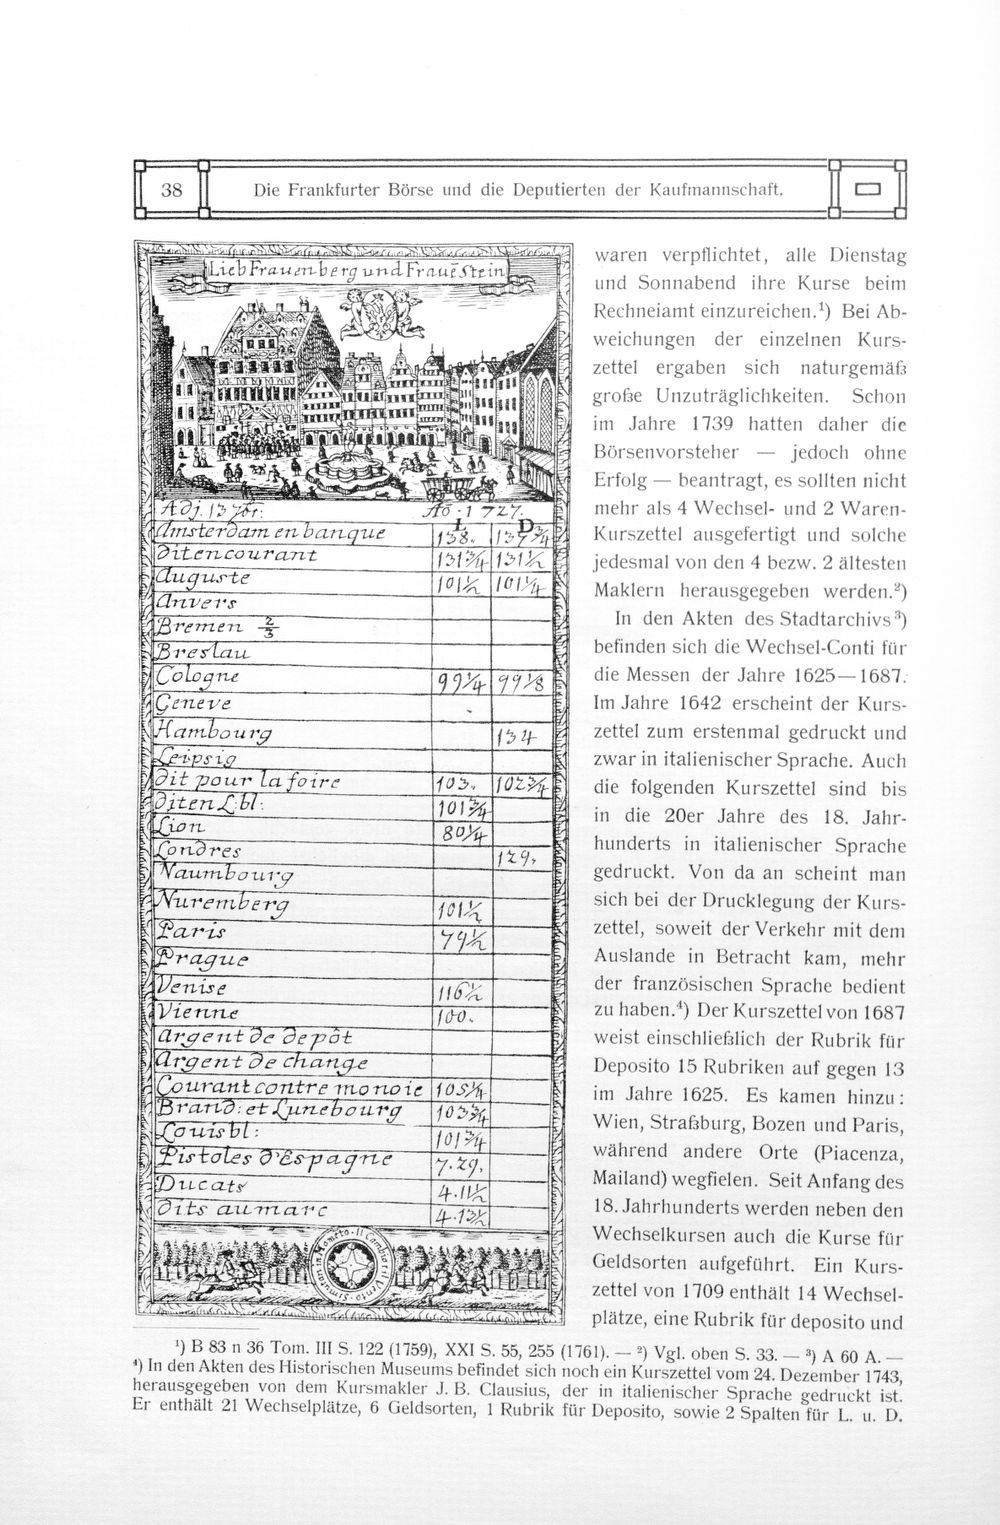 38
Die Frankfurter Börse und die Deputierten der Kaufmannschaft.
Lieb Frauenberg und Frauē Stein
Adj. 13 7br: Aō . 1727.
L D
Amsterdam en banque 138. 137¾
Dit en courant 131¾ 131½
Auguste 101½ 101¼
Anvers
Bremen ⅔
Breslau
Cologne 99¼ 99⅛
Geneve
Hambourg 134
Leipsig
Dit pour la foire 103. 102¾
Dit en L: bl: 101¾
Lion 80¼
Londres 129.
Naumbourg
Nuremberg 101½
Paris 79½
Prague
Venise 116½
Vienne 100.
Argent de depôt
Argent de change
Courant contre monoie 105¼
Brand: et Lunebourg 103¾
Louis bl: 101¾
Pistoles d'Espagne 7.29.
Ducats 4.11½
Dits au marc 4.13½
waren verpflichtet, alle Dienstag
und Sonnabend ihre Kurse beim
Rechneiamt einzureichen.¹) Bei Ab-
weichungen der einzelnen Kurs-
zettel ergaben sich naturgemäß
große Unzuträglichkeiten. Schon
im Jahre 1739 hatten daher die
Börsenvorsteher — jedoch ohne
Erfolg — beantragt, es sollten nicht
mehr als 4 Wechsel- und 2 Waren-
Kurszettel ausgefertigt und solche
jedesmal von den 4 bezw. 2 ältesten
Maklern herausgegeben werden.²)
In den Akten des Stadtarchivs³)
befinden sich die Wechsel-Conti für
die Messen der Jahre 1625—1687.
Im Jahre 1642 erscheint der Kurs-
zettel zum erstenmal gedruckt und
zwar in italienischer Sprache. Auch
die folgenden Kurszettel sind bis
in die 20er Jahre des 18. Jahr-
hunderts in italienischer Sprache
gedruckt. Von da an scheint man
sich bei der Drucklegung der Kurs-
zettel, soweit der Verkehr mit dem
Auslande in Betracht kam, mehr
der französischen Sprache bedient
zu haben.⁴) Der Kurszettel von 1687
weist einschließlich der Rubrik für
Deposito 15 Rubriken auf gegen 13
im Jahre 1625. Es kamen hinzu:
Wien, Straßburg, Bozen und Paris,
während andere Orte (Piacenza,
Mailand) wegfielen. Seit Anfang des
18. Jahrhunderts werden neben den
Wechselkursen auch die Kurse für
Geldsorten aufgeführt. Ein Kurs-
zettel von 1709 enthält 14 Wechsel-
plätze, eine Rubrik für deposito und
¹) B 83 n 36 Tom. III S. 122 (1759), XXI S. 55, 255 (1761). — ²) Vgl. oben S. 33. — ³) A 60 A. —
⁴) In den Akten des Historischen Museums befindet sich noch ein Kurszettel vom 24. Dezember 1743,
herausgegeben von dem Kursmakler J. B. Clausius, der in italienischer Sprache gedruckt ist.
Er enthält 21 Wechselplätze, 6 Geldsorten, 1 Rubrik für Deposito, sowie 2 Spalten für L. u. D.